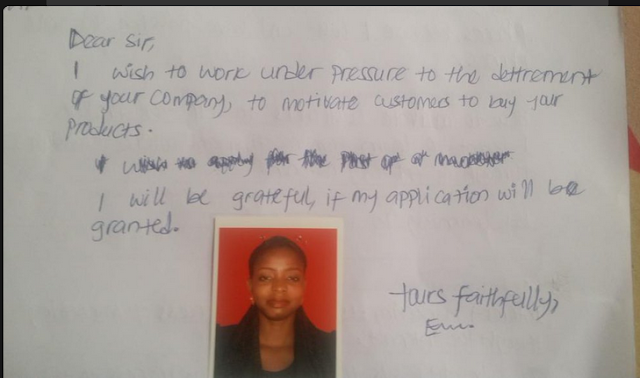 Dear Sir,
I wish to work under pressure to the dettrement
of your company, to motivate customers to buy your
products.
I will be grateful, if my application will be
granted.
Yours faithfully,